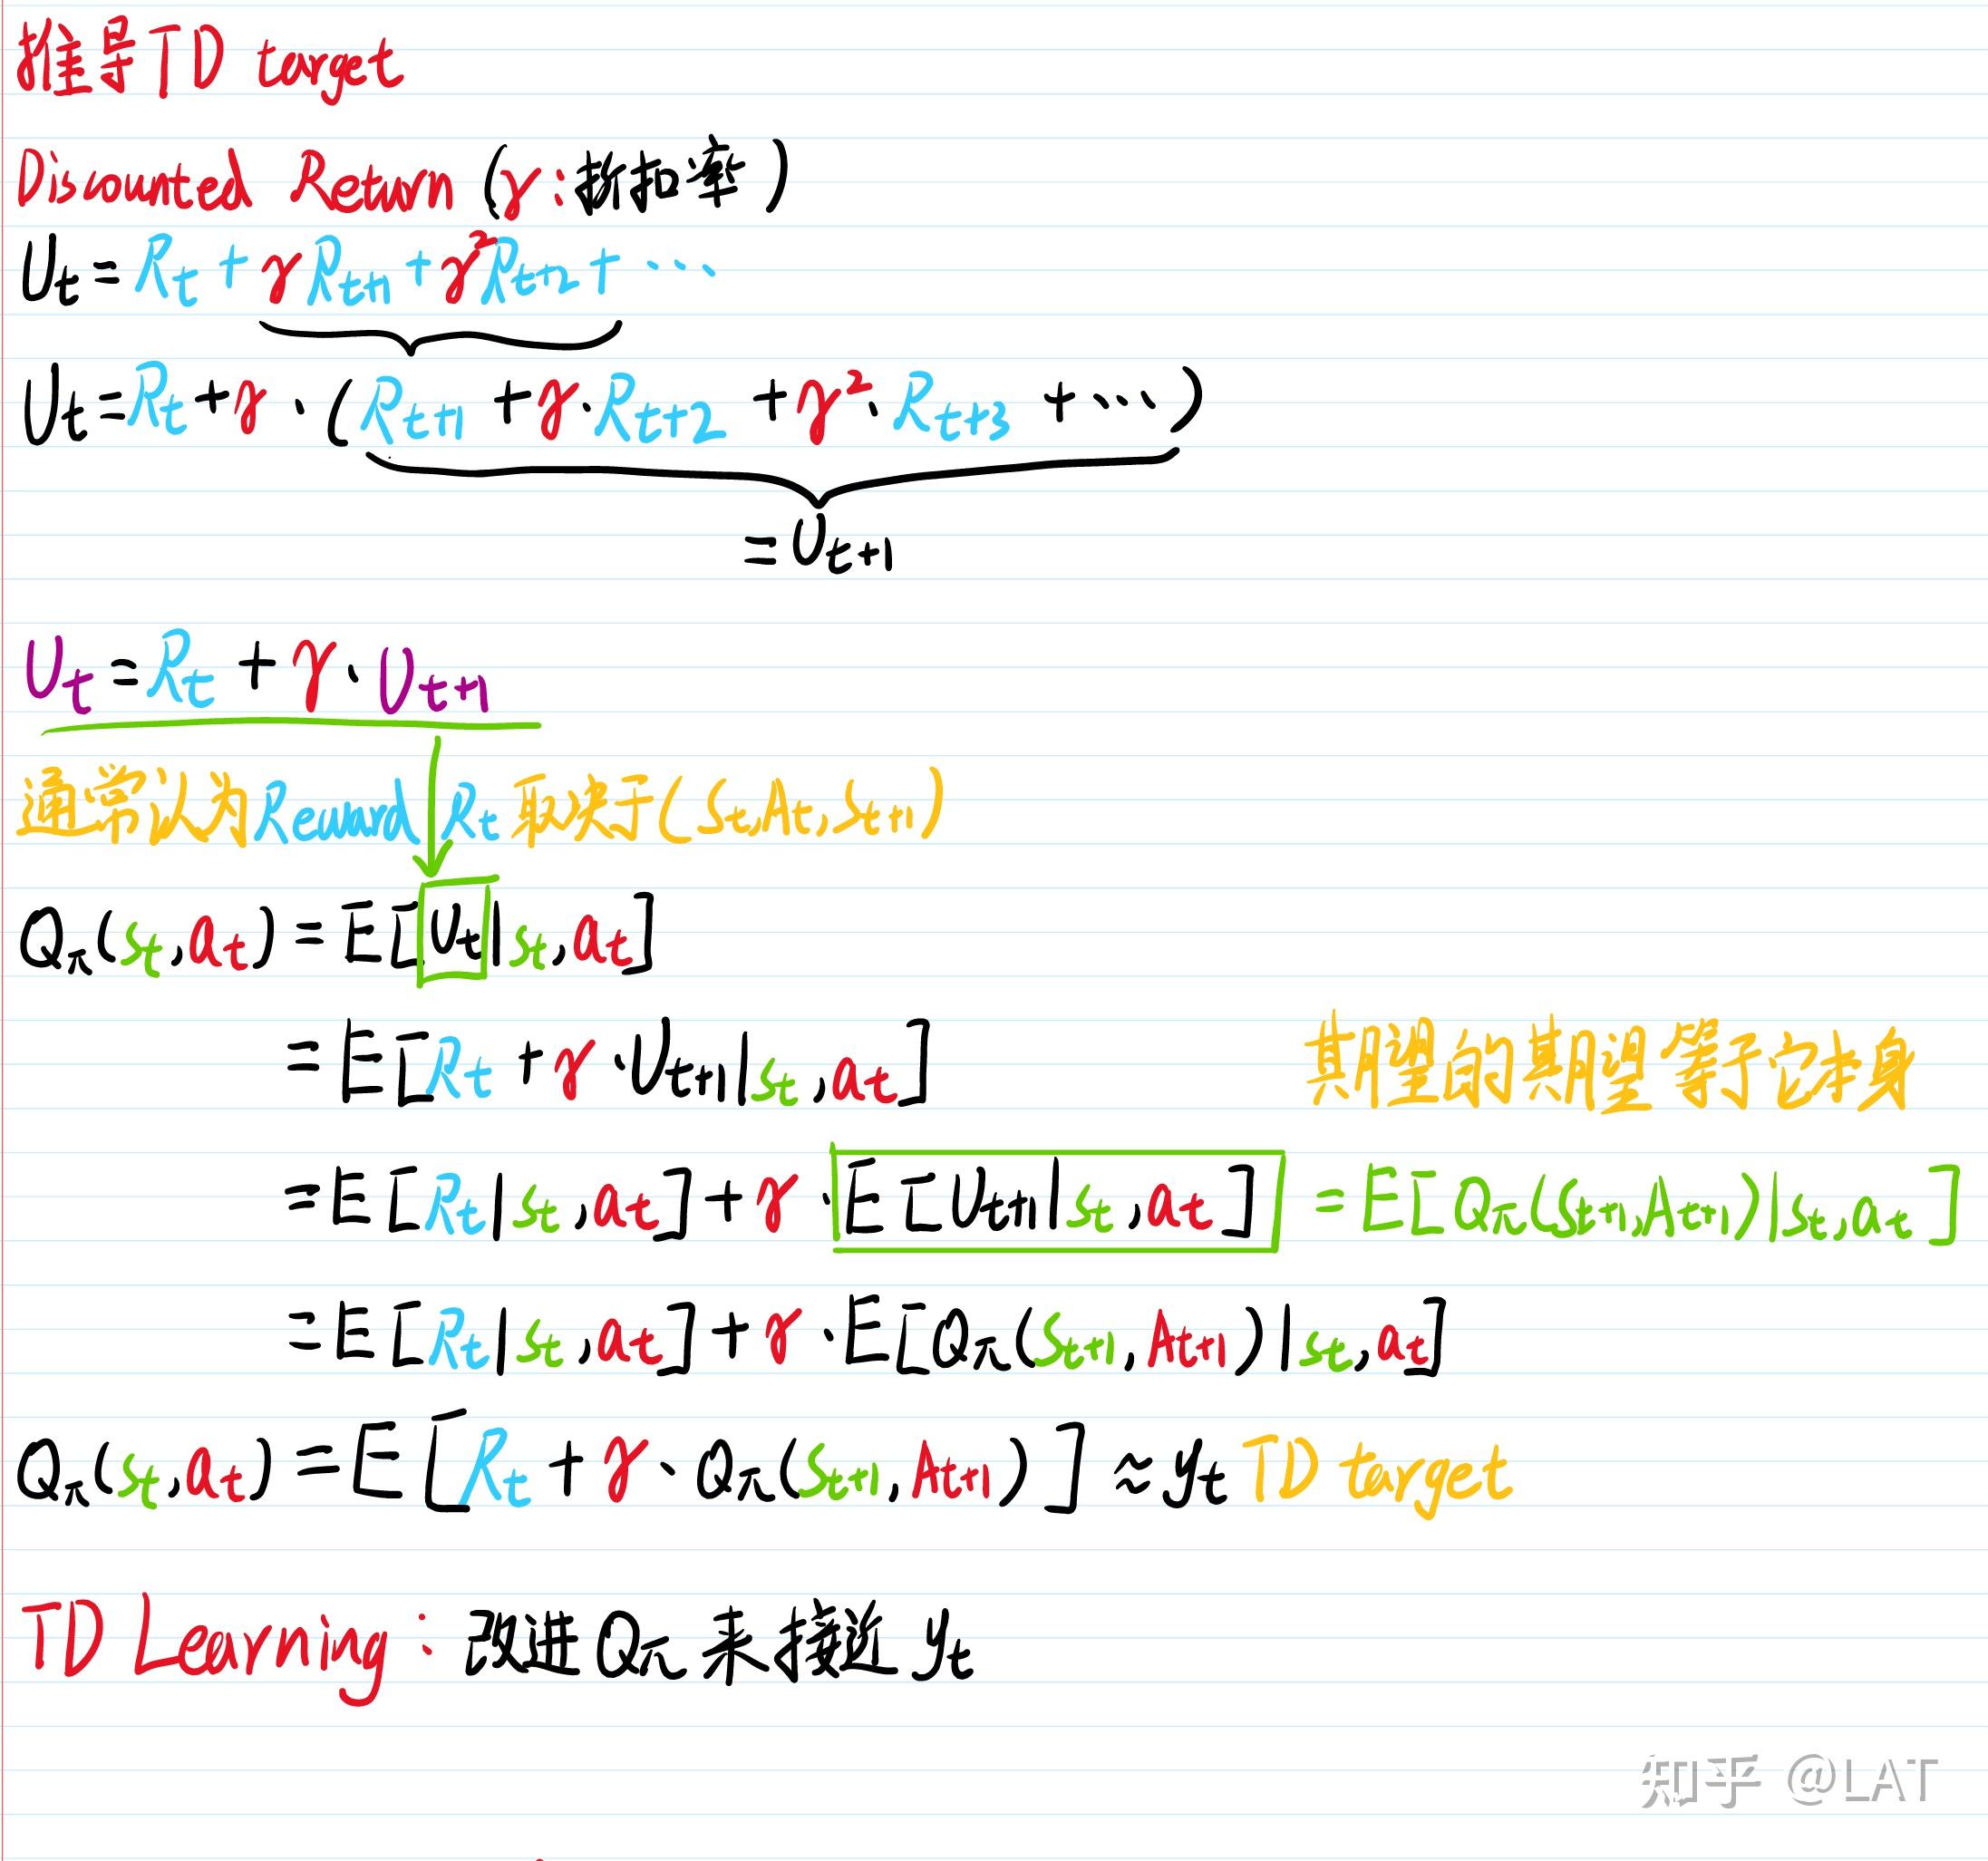 推导TD target
Discounted Return (γ:折扣率)
Ut=Rt+γRt+1+γ²Rt+2+···
Ut=Rt+γ·(Rt+1+γ·Rt+2+γ²·Rt+3+···)
=Ut+1
Ut=Rt+γ·Ut+1
通常认为Reward Rt取决于(St,At,St+1)
Qπ(st,at)=E[Ut|st,at]
=E[Rt+γ·Ut+1|st,at]
期望的期望等于它本身
=E[Rt|st,at]+γ·E[Ut+1|st,at] =E[Qπ(St+1,At+1)|st,at]
=E[Rt|st,at]+γ·E[Qπ(St+1,At+1)|st,at]
Qπ(st,at)=E[Rt+γ·Qπ(St+1,At+1)]≈yt TD target
TD Learning:改进Qπ来接近yt
知乎 @LAT